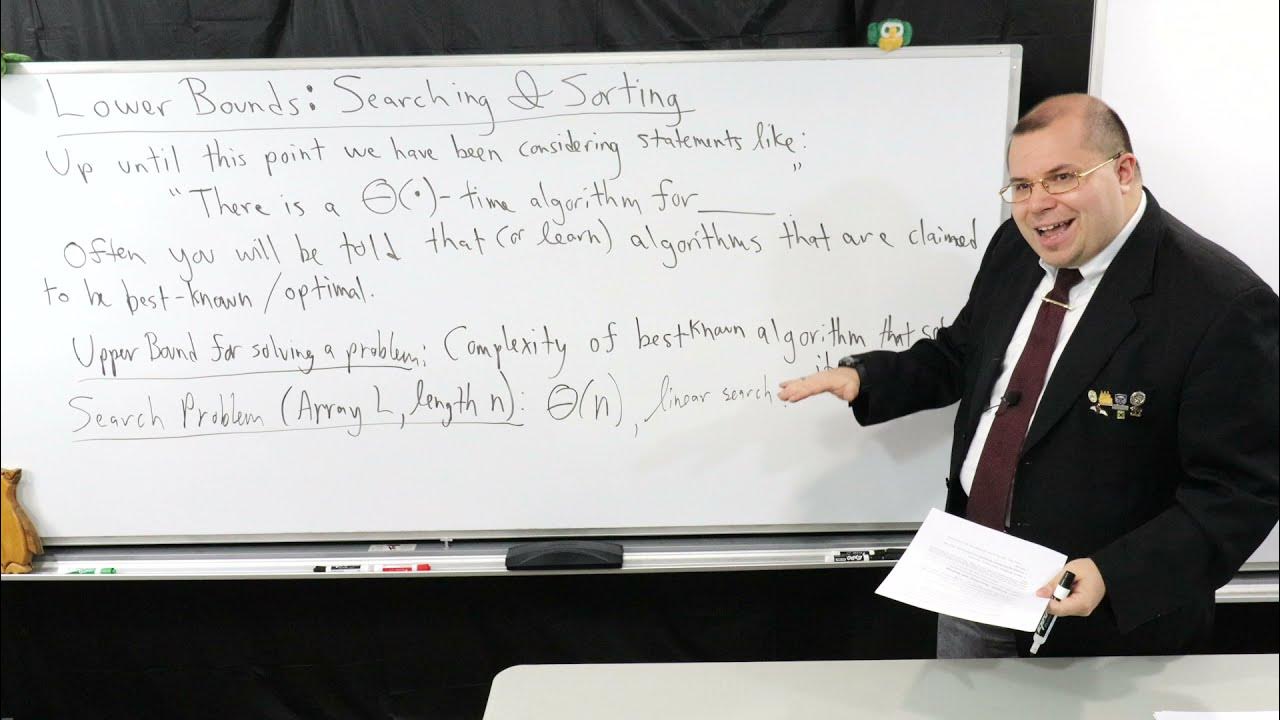 Lower Bounds: Searching & Sorting
Up until this point we have been considering statements like:
"There is a Θ(·)-time algorithm for ____."
Often you will be told that (or learn) algorithms that are claimed
to be best-known/optimal.
Upper Bound for solving a problem: Complexity of best known algorithm that
Search Problem (Array L, length n): Θ(n), linear search.
Expo